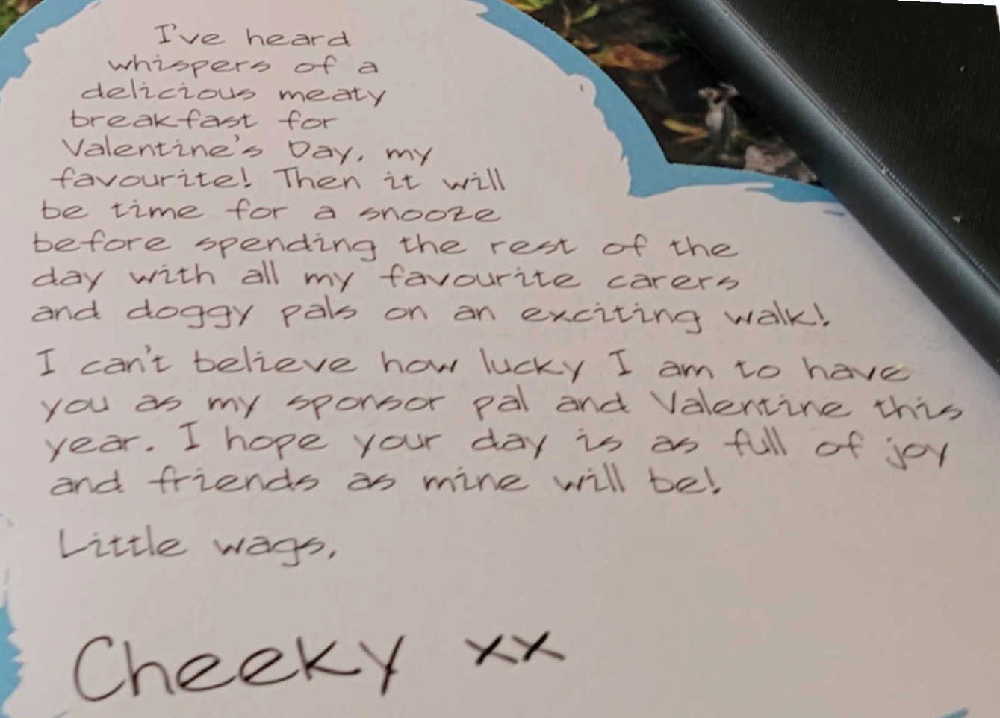 I've heard
whispers of a
delicious meaty
breakfast for
Valentine's Day, my
favourite! Then it will
be time for a snooze
before spending the rest of the
day with all my favourite carers
and doggy pals on an exciting walk!
I can't believe how lucky I am to have
you as my sponsor pal and Valentine this
year. I hope your day is as full of joy
and friends as mine will be!
Little wags,
Cheeky xx